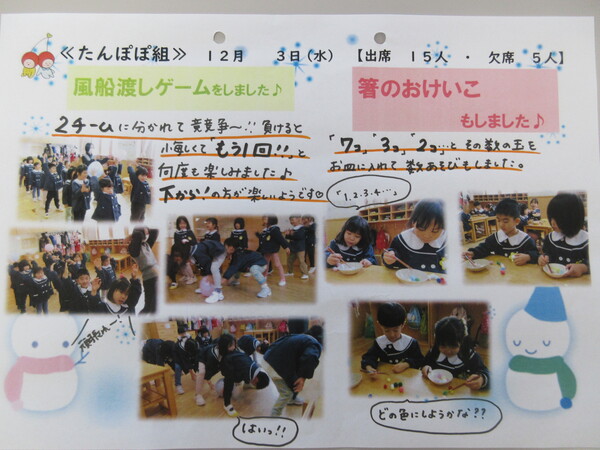 ≪たんぽぽ組≫ 12月 3日(水) 【出席 15人 ・ 欠席 5人】
風船渡しゲームをしました♪
2チームに分かれて 競争〜!! 負けると
小悔しくて「もう1回!!」と
何度も楽しみました♪
下から!の方が楽しいようです
箸のおけいこ
もしました♪
「7コ」「3コ」「2コ」…と その数の玉を
お皿に入れて 数あそびもしました。
「1.2.3.4…」
頑張れ〜!
はいっ!!
どの色にしようかな??